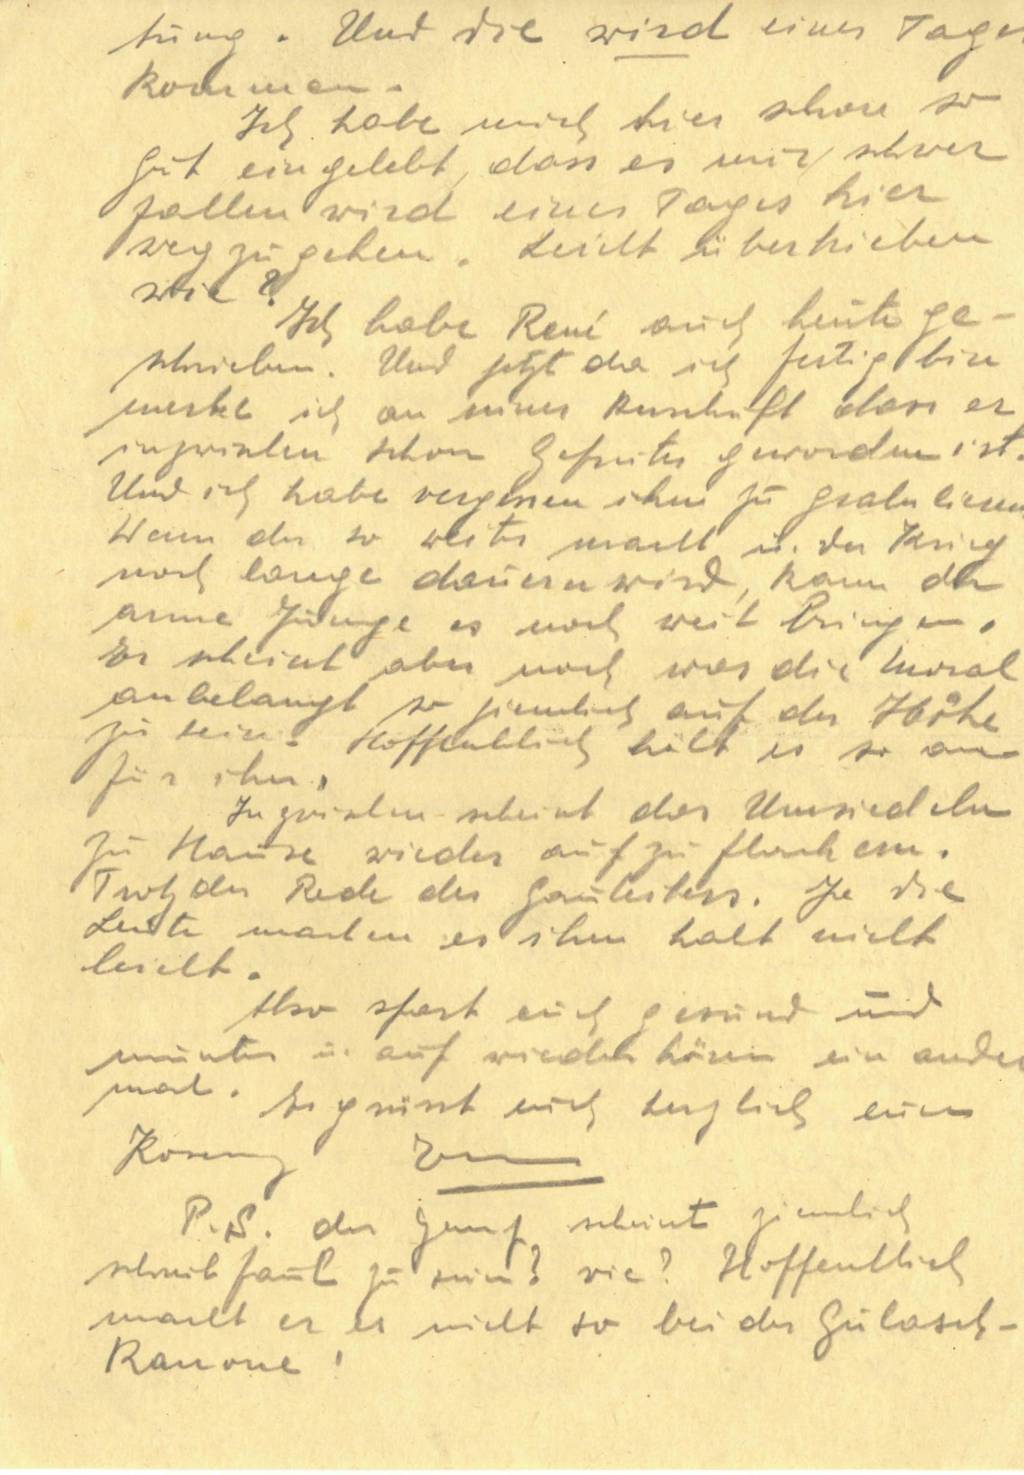 tung. Und die wird eines Tages
kommen.
Ich habe mich hier schon so
gut eingelebt, dass es mir schwer
fallen wird eines Tages hier
wegzugehen. Leicht übertrieben
wie?
Ich habe René auch heute ge-
schrieben. Und jetzt da ich fertig bin
merke ich an seiner Anschrift dass er
inzwischen schon Gefreiter geworden ist.
Und ich habe vergessen ihm zu gratulieren
Wenn der so weiter macht u. der Krieg
noch lange dauern wird, kann der
arme Junge es noch weit bringen.
Er scheint aber noch was die Moral
anbelangt so ziemlich auf der Höhe
zu sein. Hoffentlich hält es so an
für ihn.
Inzwischen scheint das Umsiedeln
zu Hause wieder aufzuflackern.
Trotz der Rede des Gauleiters. Ja die
Leute machen es ihm halt nicht
leicht.
Also spart euch gesund und
munter u. auf wiederhören ein ander
mal. Es grüsst euch herzlich euer
P.S. der scheint ziemlich
schreibfaul zu sein? wie? Hoffentlich
macht er es nicht so bei der Gulasch-
Kanone!